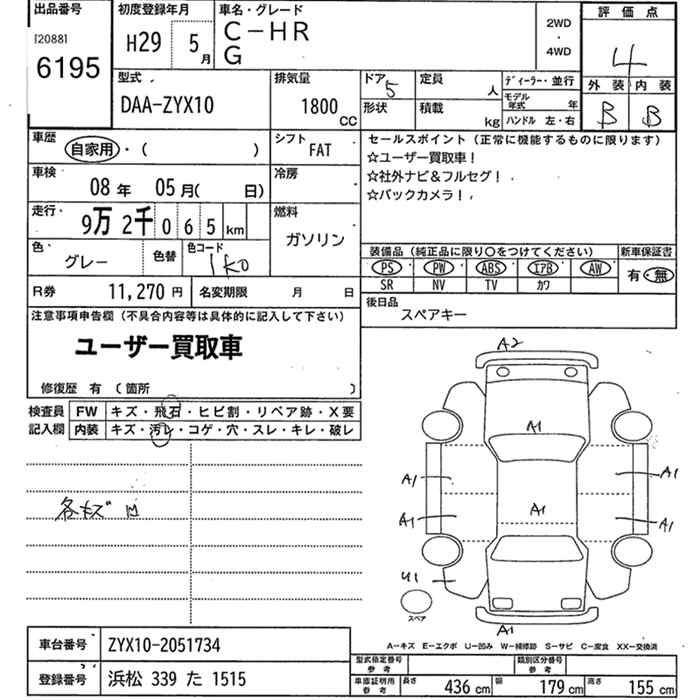 出品番号
[2088]
6195
初度登録年月
H29 5月
車名・グレード
C-HR
G
2WD
・
4WD
評価点
4
外装 内装
B B
型式
DAA-ZYX10
排気量
1800 CC
ドア 5
形状
定員 人
積載 kg
ディーラー・並行
モデル年式 年
ハンドル 左・右
車歴
自家用・( )
シフト
FAT
車検
08年 05月( 日)
冷房
走行
9万2千065km
燃料
ガソリン
色
グレー
色替
色コード
1K0
セールスポイント(正常に機能するものに限ります)
☆ユーザー買取車!
☆社外ナビ&フルセグ!
☆バックカメラ!
装備品(純正品に限り○をつけてください)
PS PW ABS エアB AW
SR NV TV カワ
新車保証書
有・無
R券 11,270円
名変期限 月 日
後日品
スペアキー
注意事項申告欄(不具合内容等は具体的に記入して下さい)
ユーザー買取車
修復歴 有(箇所 )
検査員
記入欄
FW キズ・飛石・ヒビ割・リペア跡・X要
内装 キズ・汚レ・コゲ・穴・スレ・キレ・破レ
各キズ凹
A2
A1
A1
A1
A1
A1
A1
A1
U1
スペア
A1
A=キズ E=エクボ U=凹み W=補修跡 S=サビ C=腐食 XX=交換済
車台番号 ZYX10-2051734
登録番号 浜松 339 た 1515
型式指定番号 参考
類別区分番号 参考
車庫証明用 参考
長さ 436 cm 幅 179 cm 高さ 155 cm